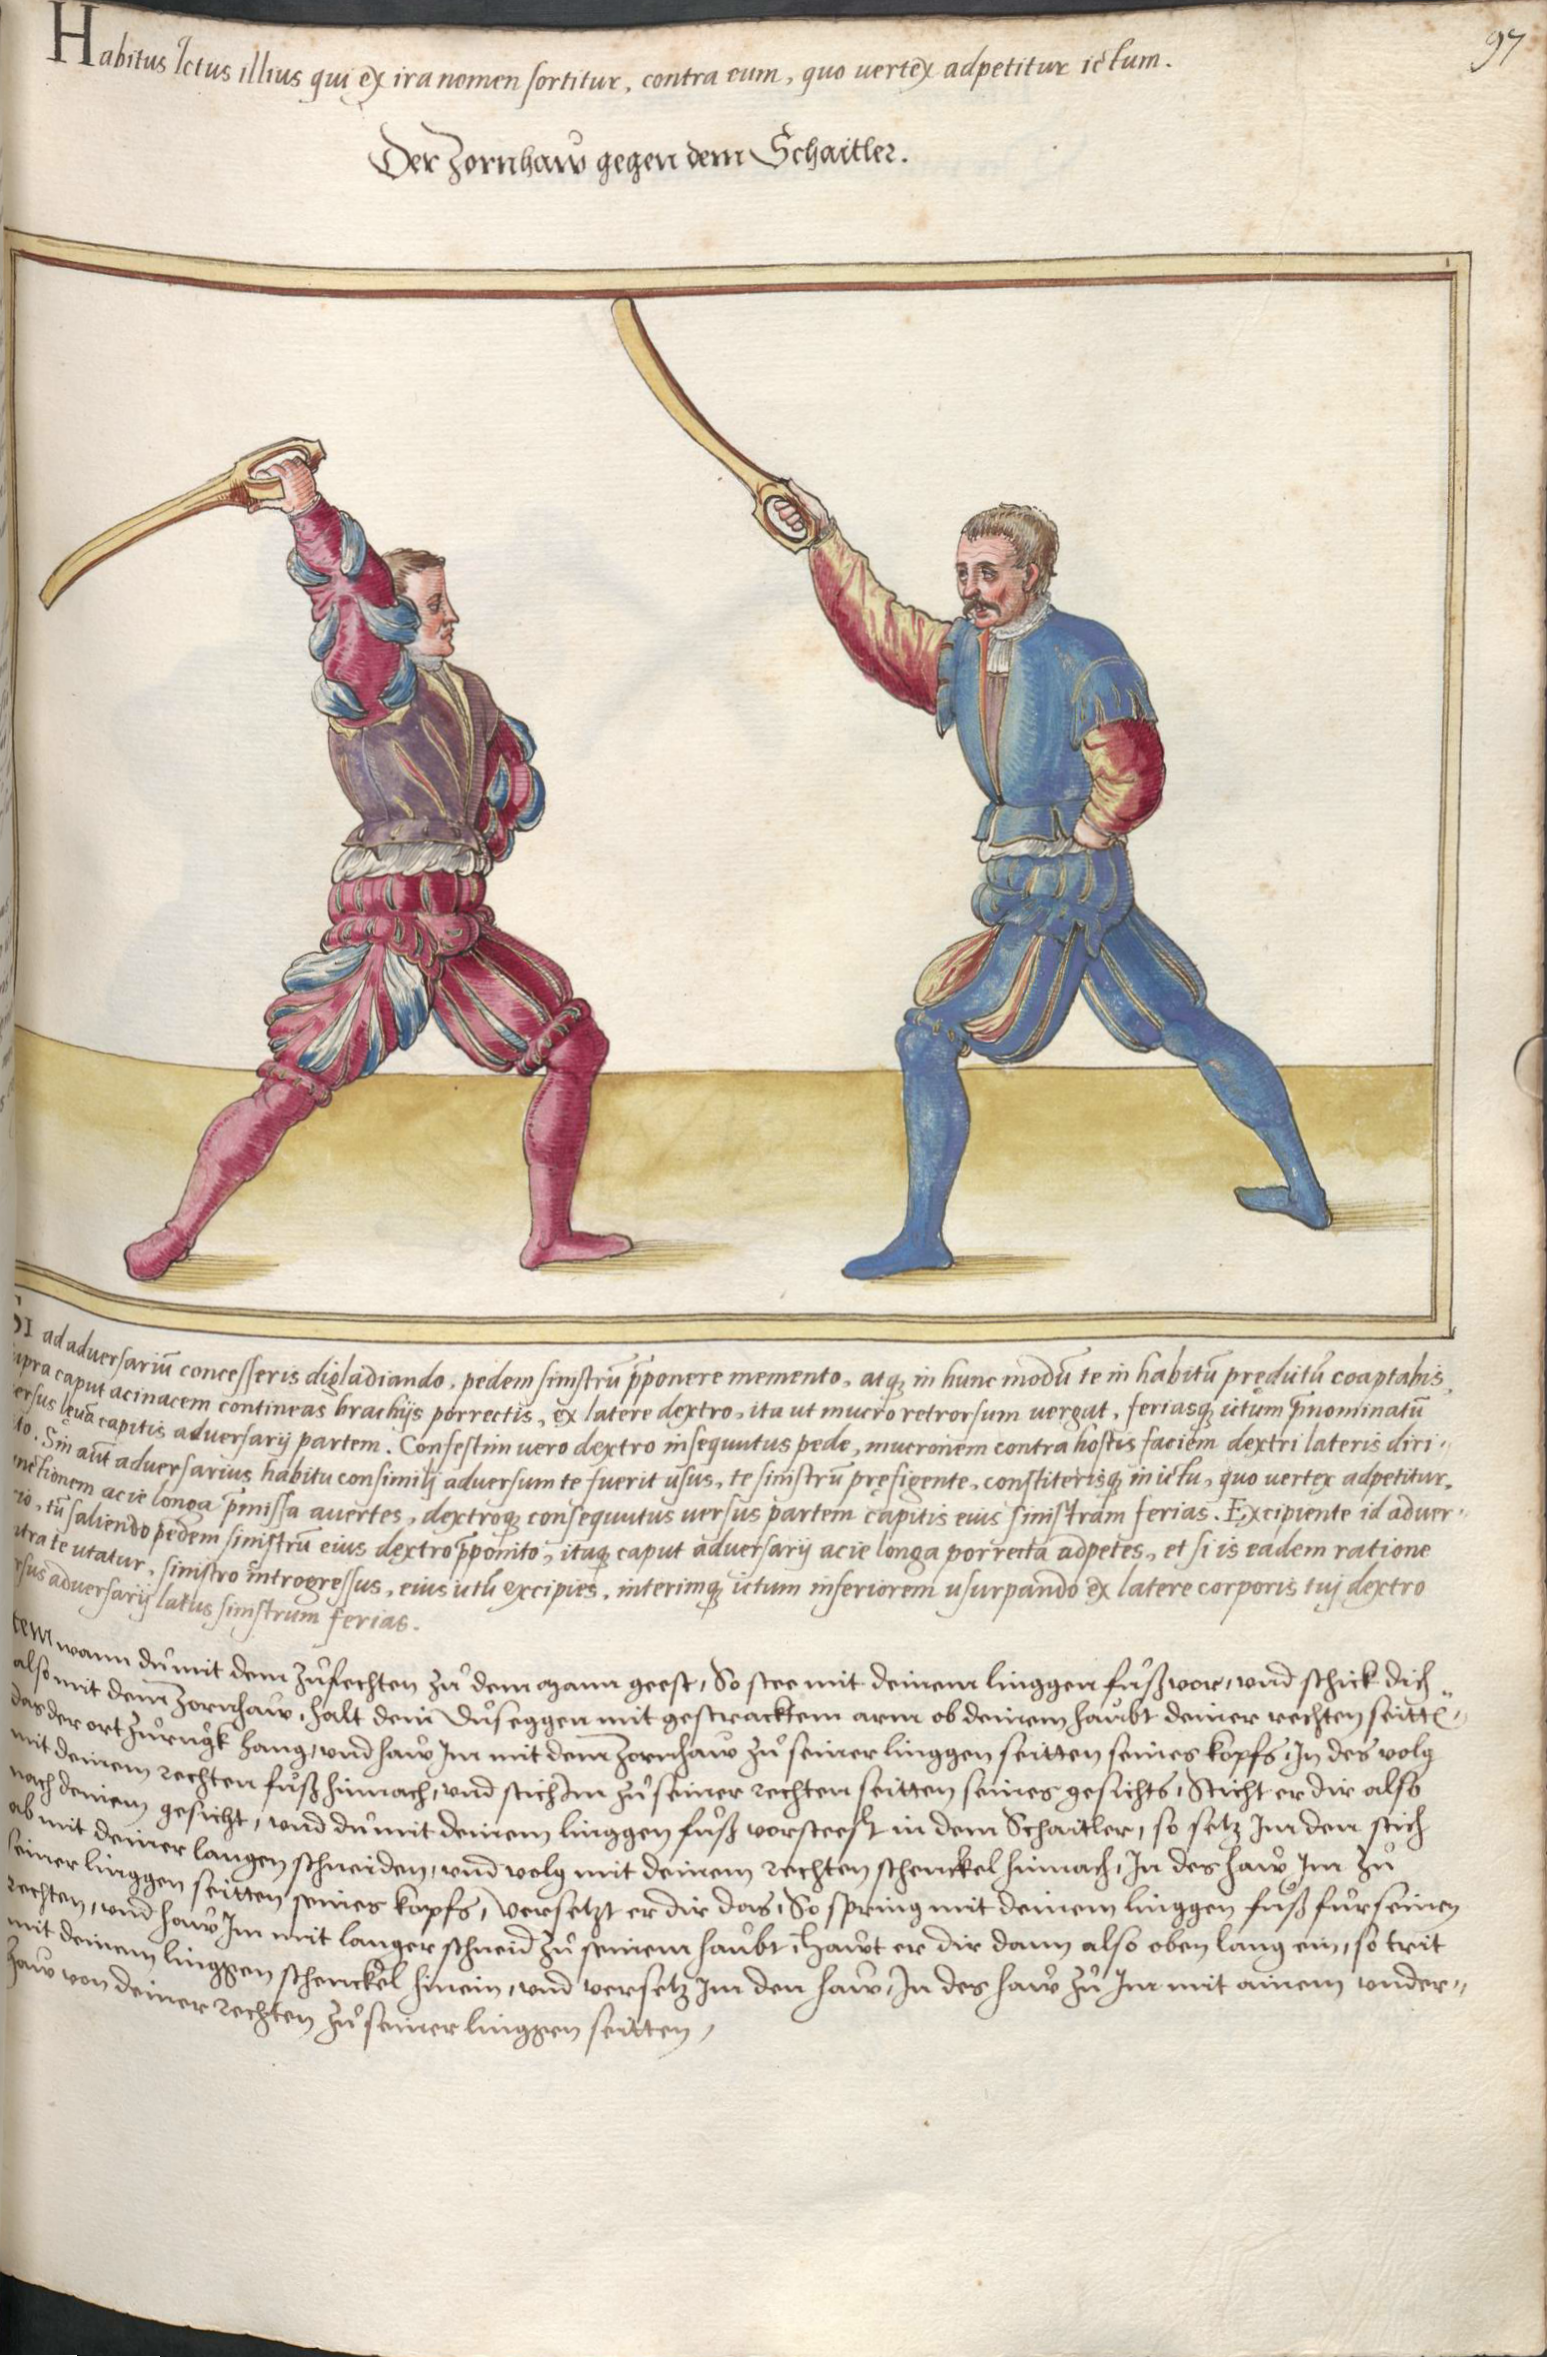 97
Habitus Ictus illius qui ex ira nomen sortitur, contra eum, quo uertex adpetitur ictum.
Der Zornhaw gegen dem Schaitler.
SI ad aduersariū concesseris digladiando, pedem sinistrū p̄ponere memento, atq; in hunc modū te in habitū prędictū coaptabis,
supra caput acinacem contineas brachijs porrectis, ex latere dextro, ita ut mucro retrorsum uergat, feriasq; ictum p̄nominatū
uersus lęuā capitis aduersarij partem. Confestim uero dextro insequutus pede, mucronem contra hostis faciem dextri lateris diri-
to. Sin aūt aduersarius habitu consimilj aduersum te fuerit usus, te sinistrū pręfigente, constiterisq; in ictu, quo uertex adpetitur,
nctionem acie longa p̄missa auertes, dextroq; consequutus uersus partem capitis eius sinistram ferias. Excipiente id aduer-
rio, tū saliendo pedem sinistrū eius dextro p̄ponito, itaq; caput aduersarij acie longa porrecta adpetes, et si is eadem ratione
ntra te utatur, sinistro introgressus, eius ictū excipies, interimq; ictum inferiorem usurpando ex latere corporis tuj dextro
rsus aduersarij latus sinistrum ferias.
tem wann du mit dem zůfechten zů dem mann geest, So stee mit deinem linggen fůß vor, vnd schick dich
also mit dem Zornhaw, halt dein Duseggen mit gestracktem arm ob deinem haubt deiner rechten seitten
das der ort zůrugk hang, vnd haw Im mit dem Zornhaw zů seiner linggen seitten seines kopfs, In des volg
mit deinem rechten fůß hinnach, vnd stich Im zů seiner rechten seitten seines gesichts, Sticht er dir also
nach deinem gesicht, vnd du mit deinem linggen fůß vorsteest in dem Schaitler, so setz Im den stich
ab mit deiner langen schneiden, vnd volg mit deinem rechten schenckel hinnach, In des haw Im zů
seiner linggen seitten seines kopfs, Versetzt er dir das, So spring mit deinem linggen fůß fur seinen
rechten, vnd haw Im mit langer schneid zů seinem haubt, Hawt er dir dann also oben lang ein, so trit
mit deinem linggen schenckel hinein, vnd versetz Im den haw, In des haw zů Im mit ainem vnder-
haw von deiner rechten zů seiner linggen seitten,